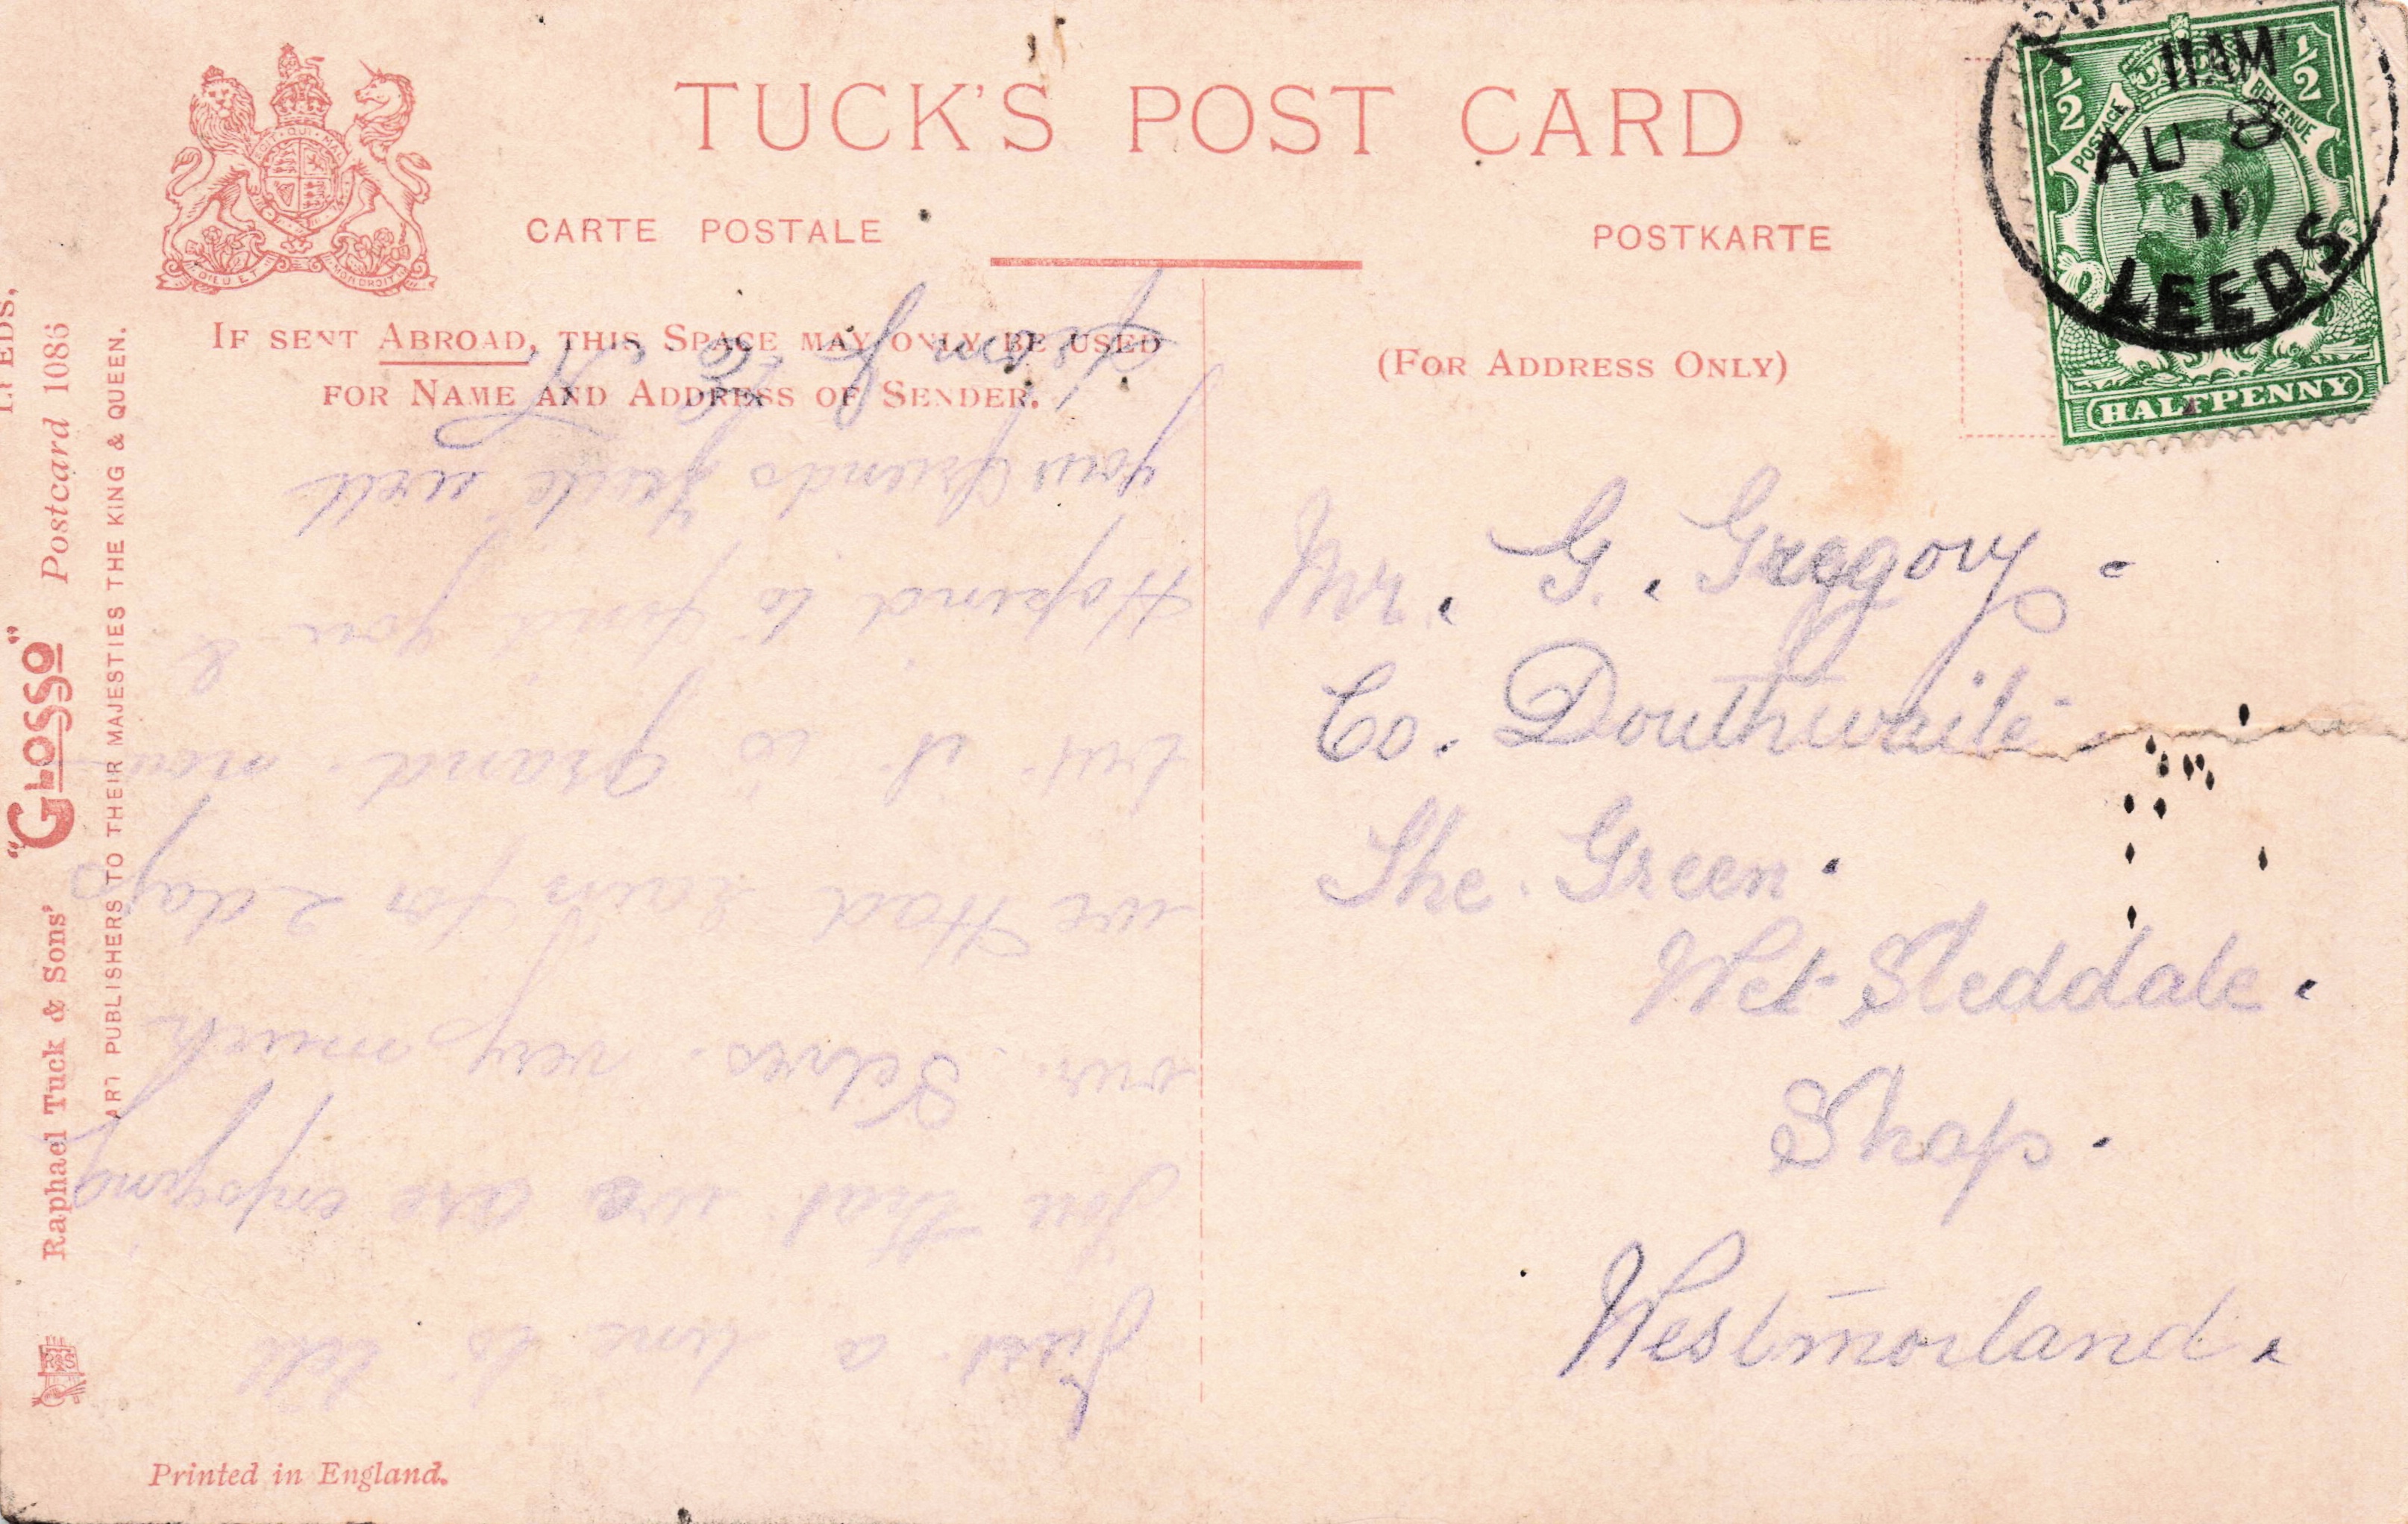 TUCK'S POST CARD
CARTE POSTALE
POSTKARTE
IF SENT ABROAD, THIS SPACE MAY ONLY BE USED
FOR NAME AND ADDRESS OF SENDER.
(FOR ADDRESS ONLY)
½ ½
POSTAGE REVENUE
HALFPENNY
11 AM
AU 8
11
LEEDS
DIEU ET MON DROIT
Mr. G. Greggory.
Co. Douthwaite
The Green.
Wet Sleddale.
Shap.
Westmorland.
Just a line to tell
you that we are enjoying
our Selves. very much
we Had rain for 2 days
but it is grand. now
Hopind to find you &
your friends quite well
from J to
LEEDS,
Raphael Tuck & Sons' "GLOSSO" Postcard 1086
ART PUBLISHERS TO THEIR MAJESTIES THE KING & QUEEN.
Printed in England.